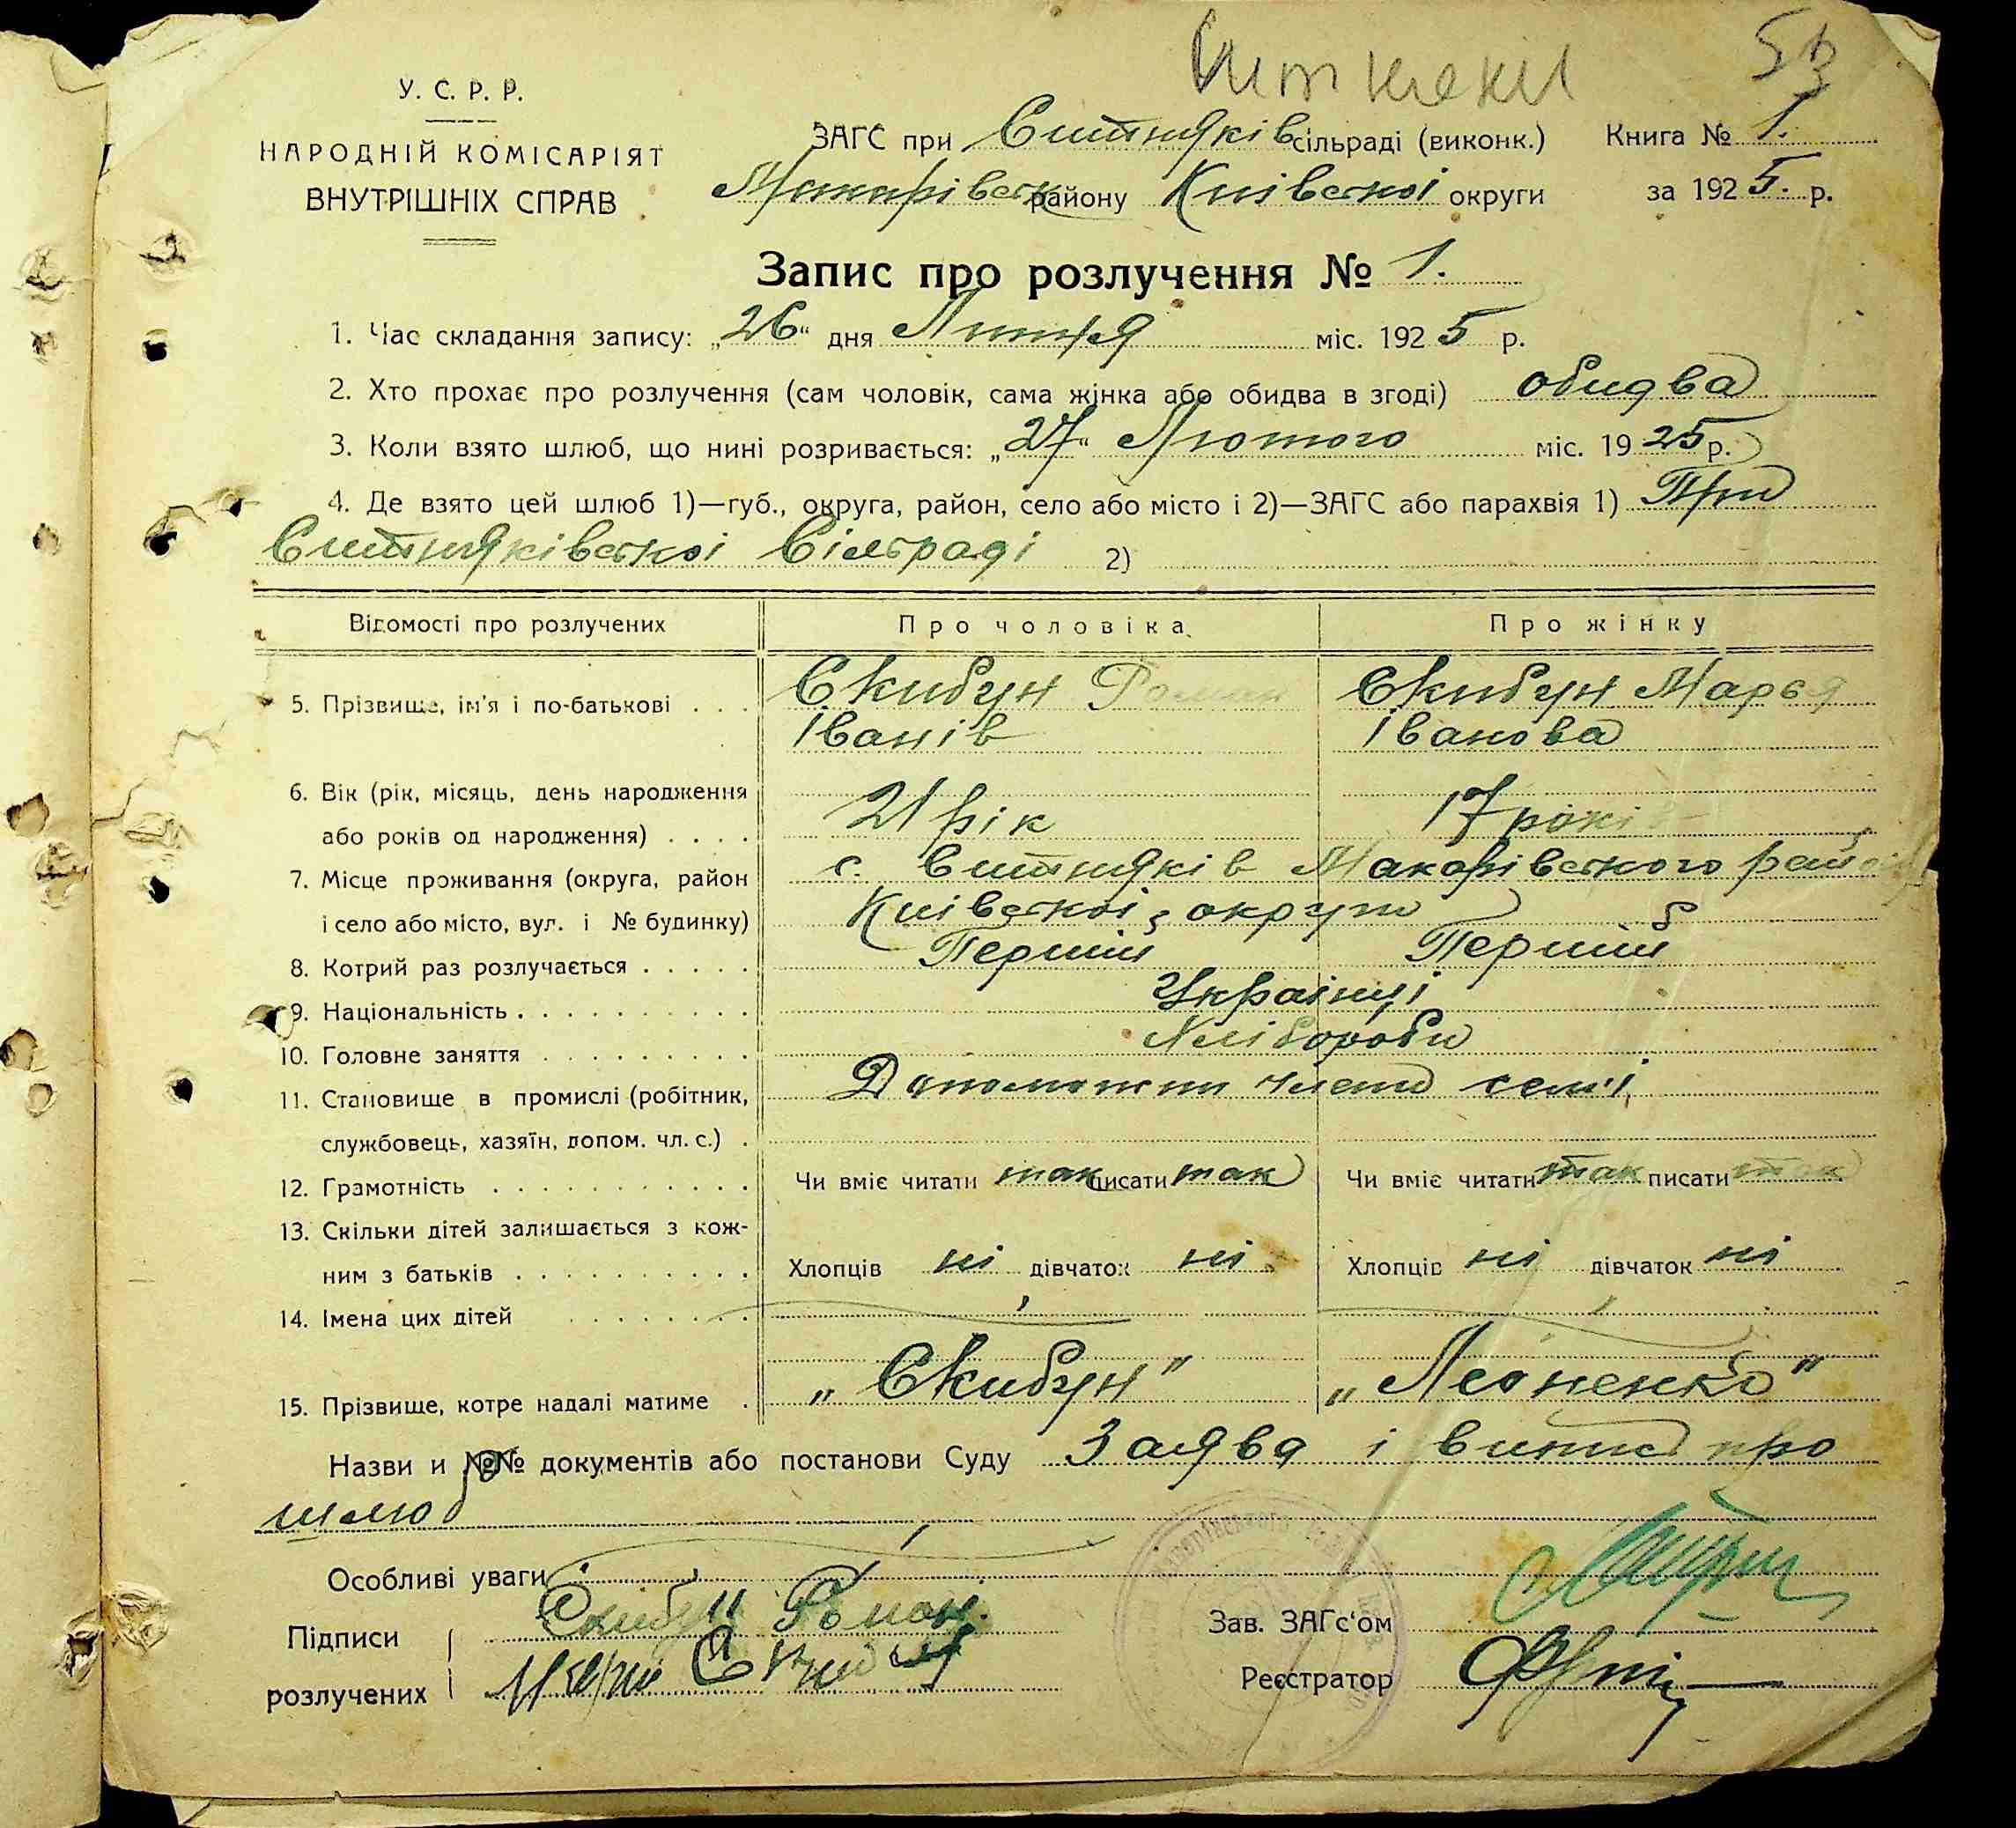 Ситняки
53
У. С. Р. Р.
НАРОДНІЙ КОМІСАРІЯТ
ВНУТРІШНІХ СПРАВ
ЗАГС при Ситняків сільраді (виконк.) Книга № 1.
Макарівськ району Київської округи за 1925. р.
Запис про розлучення № 1.
1. Час складання запису: „26“ дня міс. 1925 р.
2. Хто прохає про розлучення (сам чоловік, сама жінка або обидва в згоді) обидва
3. Коли взято шлюб, що нині розривається: „27“ Лютого міс. 1925 р.
4. Де взято цей шлюб 1)—губ., округа, район, село або місто і 2)—ЗАГС або парахвія 1) При
Ситняківської Сільраді 2)
Відомості про розлучених Про чоловіка Про жінку
5. Прізвище, ім'я і по-батькові . . . Скибун Роман Скибун Марья
Іванів Іванова
6. Вік (рік, місяць, день народження
або років од народження) . . . . 21 рік 17 років
7. Місце проживання (округа, район с. Ситняків Макарівського району
і село або місто, вул. і № будинку) Київської округи
8. Котрий раз розлучається . . . . . Перший Перший
9. Національність . . . . . . . . . . Українці
10. Головне заняття . . . . . . . . . Хлібороби
11. Становище в промислі (робітник, члени сем'ї
службовець, хазяїн, допом. чл. с.) .
12. Грамотність . . . . . . . . . . . Чи вміє читати так писати так Чи вміє читати так писати так
13. Скільки дітей залишається з кож-
ним з батьків . . . . . . . . . . Хлопців ні дівчаток ні Хлопців ні дівчаток ні
14. Імена цих дітей . . . . . . . .
15. Прізвище, котре надалі матиме . „Скибун“ „Леоненко“
Назви и №№ документів або постанови Суду Заява і випис про
шлюб
Особливі уваги
Підписи Скибун Роман
розлучених
Зав. ЗАГс'ом
Реєстратор